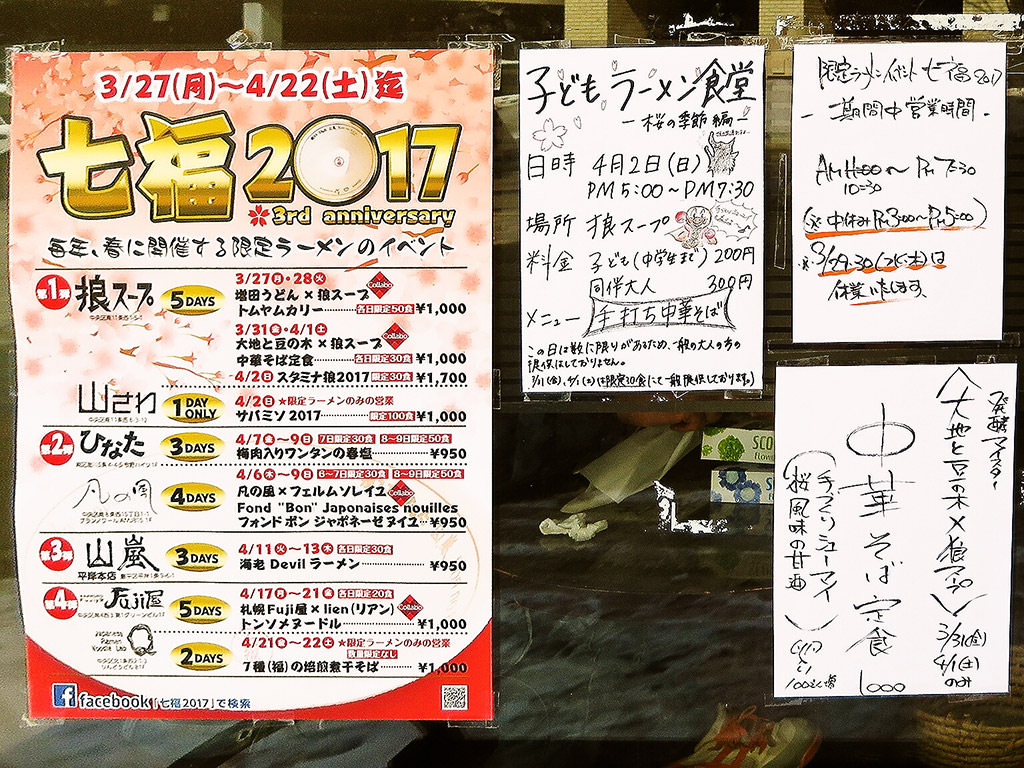 3/27(月)〜4/22(土)迄
七福2017
3rd anniversary
毎年、春に開催する限定ラーメンのイベント
第1弾
狼スープ
5DAYS
3/27月・28火
増田うどん×狼スープ
Collabo
トムヤムカリー 各日限定50食 ¥1,000
3/31金・4/1土
大地と豆の木×狼スープ
Collabo
中華そば定食 各日限定30食 ¥1,000
4/2日 スタミナ狼2017 限定30食 ¥1,700
山さわ
1DAY ONLY
4/2日 ★限定ラーメンのみの営業
サバミソ2017 限定100食 ¥1,000
第2弾
ひなた
3DAYS
4/7金〜9日 7日限定30食 8〜9日限定50食
梅肉入りワンタンの春塩 ¥950
凡の風
4DAYS
4/6木〜9日 6〜7日限定30食 8〜9日限定50食
凡の風×フェルムソレイユ
Collabo
Fond "Bon" Japonaises nouilles
フォンド ボン ジャポネーゼ ヌイユ ¥950
第3弾
山嵐
平岸本店
3DAYS
4/11火〜13木 各日限定30食
海老 Devil ラーメン ¥950
第4弾
Fuji屋
5DAYS
4/17月〜21金 各日限定20食
札幌Fuji屋×lien(リアン)
Collabo
トンソメヌードル ¥1,000
Japanese Ramen Noodle Lab Q
2DAYS
4/21金〜22土 ★限定ラーメンのみの営業
数量限定なし
7種(福)の焙煎煮干そば ¥1,000
facebook「七福2017」で検索
子どもラーメン食堂
ー桜の季節編ー
日時 4月2日(日)
PM5:00〜PM7:30
場所 狼スープ
料金 子ども(中学生まで)200円
同伴大人 300円
メニュー 手打ち中華そば
この日は数に限りがあるため、一般の大人の方の
提供はしておりません。
3/31(金)、4/1(土)は限定30食にて一般提供しております。)
限定ラーメンイベント七福2017
- 期間中営業時間 -
AM11:00〜PM7:30
10:30
(※中休みPM3:00〜PM5:00)
※3/29.30(水・木)は
休業いたします。
発酵マイスター
〈大地と豆の木×狼スープ〉
3/31(金)
4/1(土)
のみ
中華そば定食
1000
手づくりシューマイ
桜風味の甘酒